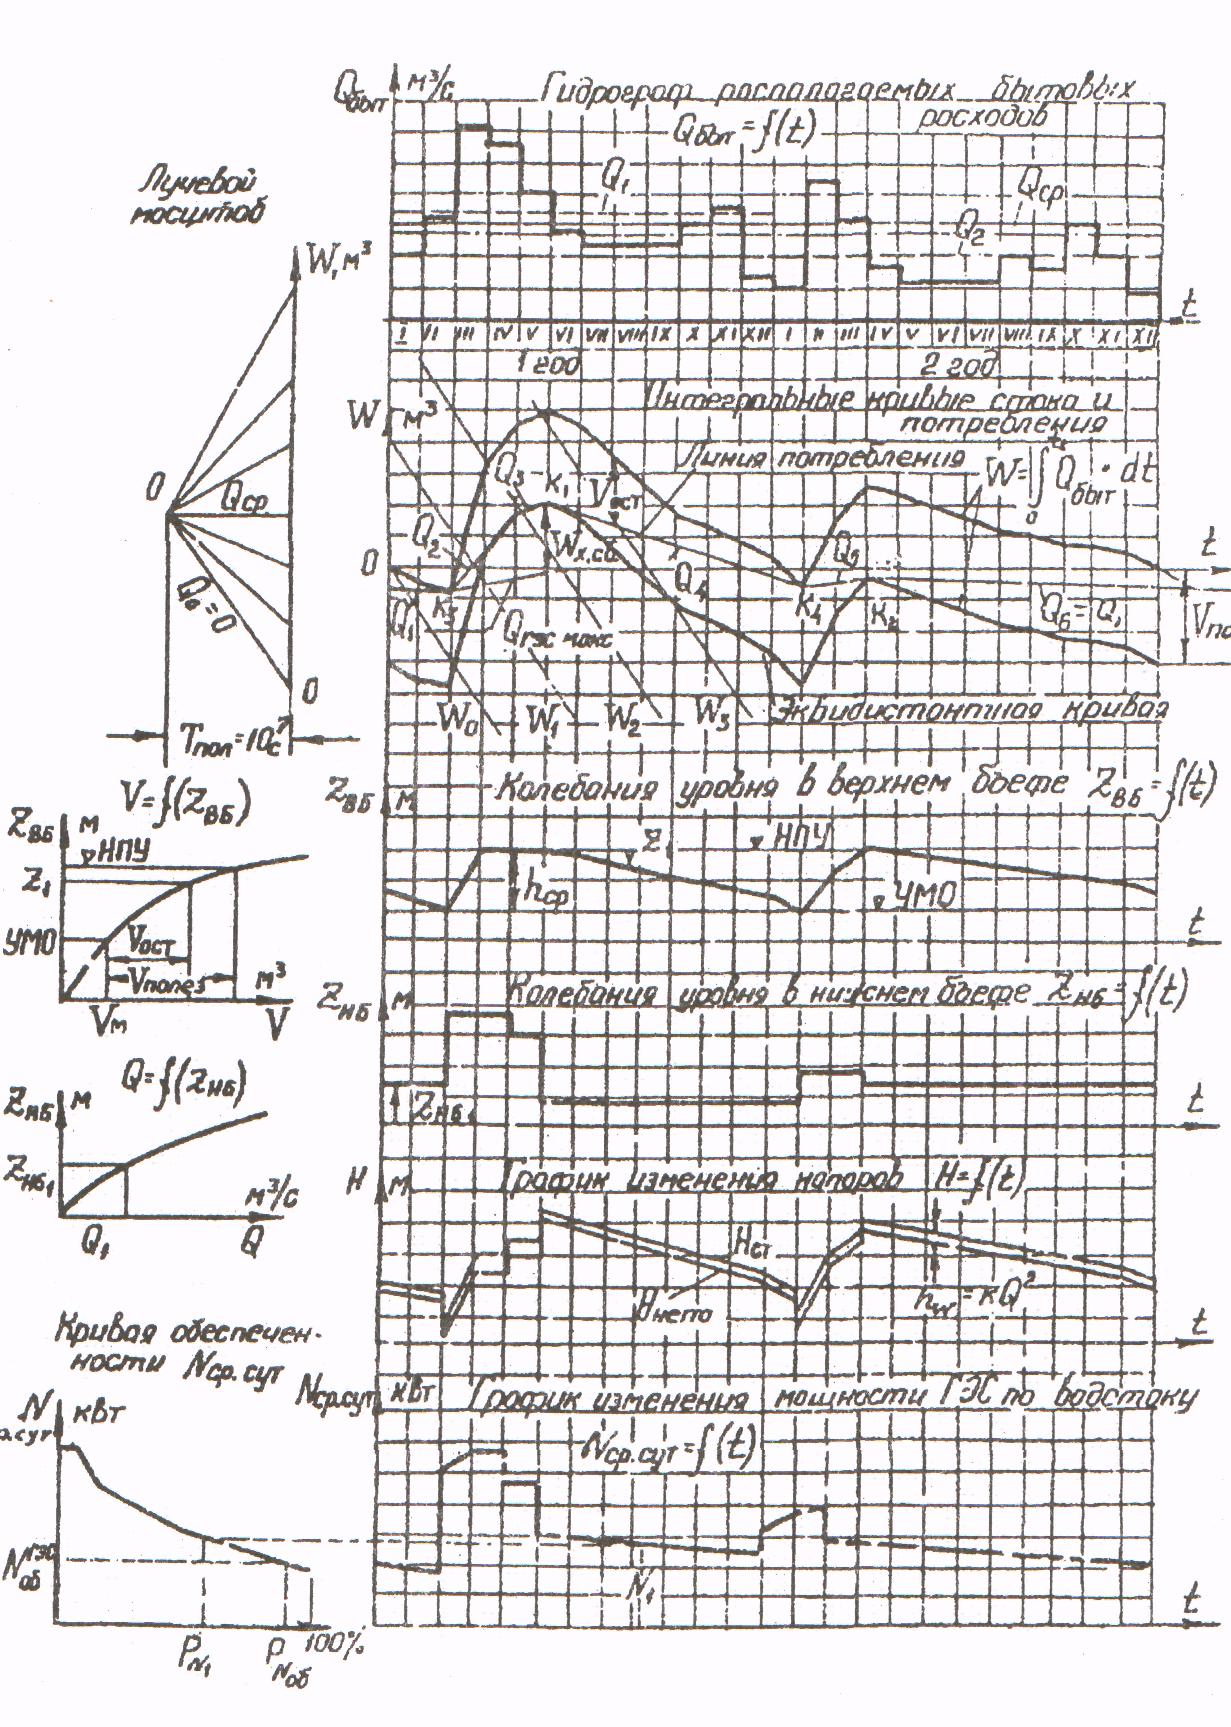 Qбыт м³/с
Гидрограф располагаемых бытовых
расходов
Qбыт = f(t)
Q₁
Qср
Q₂
t
I II III IV V VI VII VIII IX X XI XII I II III IV V VI VII VIII IX X XI XII
1 год
2 год
Лучевой
масштаб
W, м³
0
Qср
Q₀ = 0
0
Tпол = 10 с
W м³
Интегральные кривые стока и
потребления
Линия потребления
W = ∫ Qбыт · dt
t
0
0
Q₃
K₁
Vост
Q₂
Wх.сб
Q₄
Q₅
t
K₃
Q₁
Qгэс макс
K₄
K₂
Q₆ = Q₁
Vпо
W₀
W₁
W₂
W₃
Эквидистантная кривая
V = f(Zвб)
Zвб м
НПУ
Z₁
УМО
Vост
Vполез
м³
Vм
V
Zвб м
Колебания уровня в верхнем бьефе Zвб = f(t)
Z₁
НПУ
hср
УМО
t
Zнб м
Колебания уровня в нижнем бьефе Zнб = f(t)
Zнб₁
t
Q = f(Zнб)
Zнб м
Zнб₁
м³/с
Q₁
Q
H м
График изменения напоров H = f(t)
Hст
Hнетто
hw = кQ²
t
Кривая обеспечен-
ности Nср.сут
N квт
р.сут
Nоб гэс
PN₁
PNоб
100%
Nср.сут квт
График изменения мощности ГЭС по водотоку
Nср.сут = f(t)
N₁
t